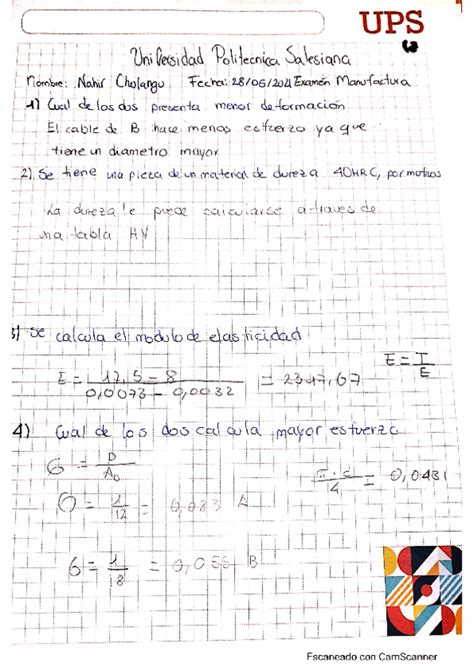 UPS
Universidad Politecnica Salesiana
nombre: Nahir Cholango Fecha: 28/06/2021 Examén Manufactura
1) Cual de los dos presenta menor deformación
El cable de B hace menos esfuerzo ya que
tiene un diametro mayor
2) Se tiene una pieza de un material de dureza 40HRC, por motivos
La dureza le puede calcularse a traves de
una tabla HV
3) Se calcula el modulo de elasticidad
E = 17,5 - 8 / 0,0073 - 0,0032 = 2317,07
E = I / E
4) Cual de los dos calcula mayor esfuerzo
6 = P / A0
π . d / 4 = 0,0431
O = 1 / 12 = 0,083 A
6 = 1 / 18 = 0,055 B
Escaneado con CamScanner